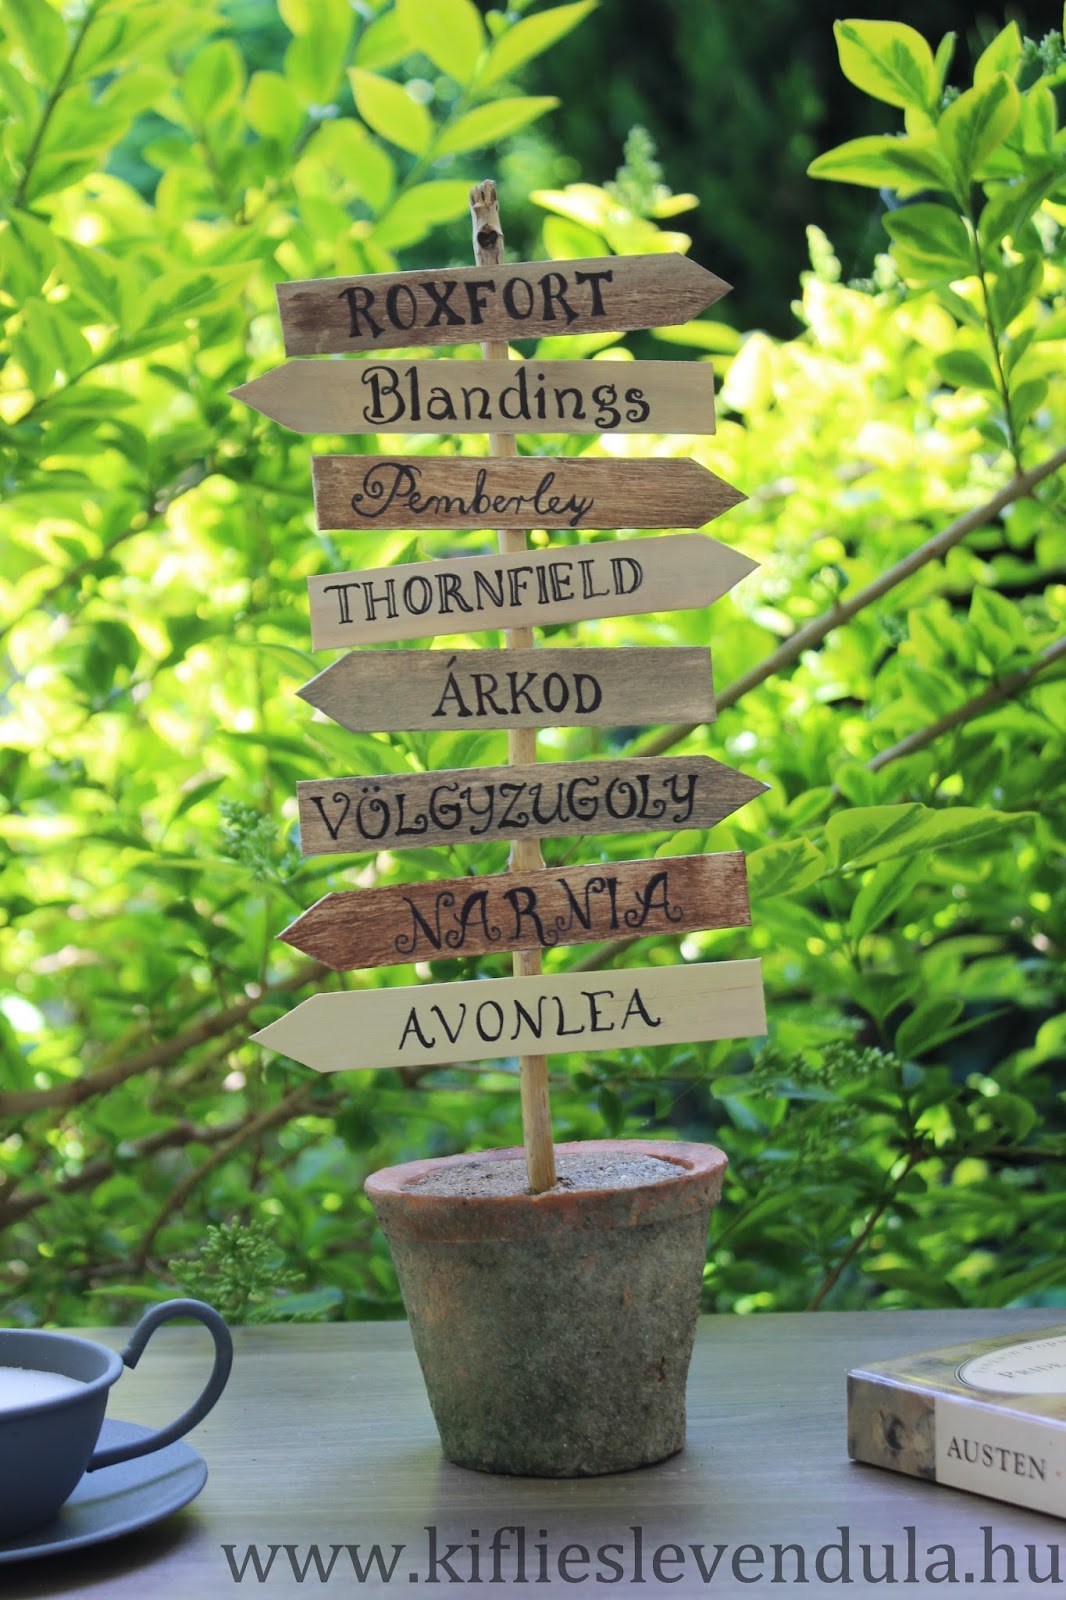 ROXFORT
Blandings
Pemberley
THORNFIELD
ÁRKOD
VÖLGYZUGOLY
NARNIA
AVONLEA
PRIDE
AUSTEN
www.kiflieslevendula.hu